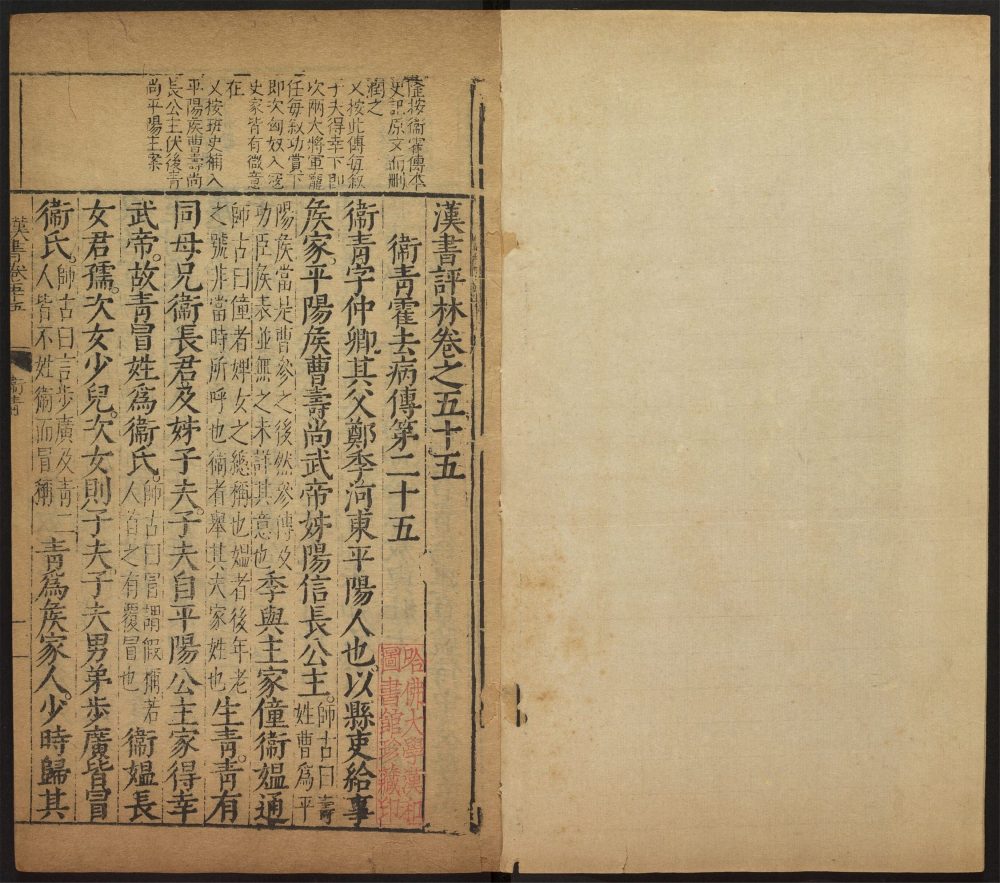 隆按衞霍傳本
史記原文而刪
潤之
又按此傳每叙
子夫得幸下即
次兩大將軍寵
任每叙功賞下
即次匈奴入寇
史家皆有微意
在
又按班史補入
平陽矦曹壽尚
長公主伏後青
尚平陽主案
漢書評林卷之五十五
衞靑霍去病傳第二十五
衞靑字仲卿其父鄭季河東平陽人也以縣吏給事
矦家平陽矦曹壽尚武帝姊陽信長公主。師古曰壽姓曹爲平
陽矦當是曹參之後然參傳及功臣矦表並無之未詳其意也季與主家僮衞媼通
師古曰僮者婢女之總稱也媼者後年老之號非當時所呼也衞者舉其夫家姓也生靑。靑有
同母兄衞長君及姊子夫。子夫自平陽公主家得幸
武帝。故靑冒姓爲衞氏。師古曰冒謂假稱若人首之有覆冒也衞媼長
女君孺。次女少兒。次女則子夫。子夫男弟步廣皆冒
衞氏。師古曰言步廣及靑二人皆不姓衞而冒稱靑爲矦家人。少時歸其
漢書卷五十五
衞靑
一
哈佛大學漢和
圖書館珍藏印